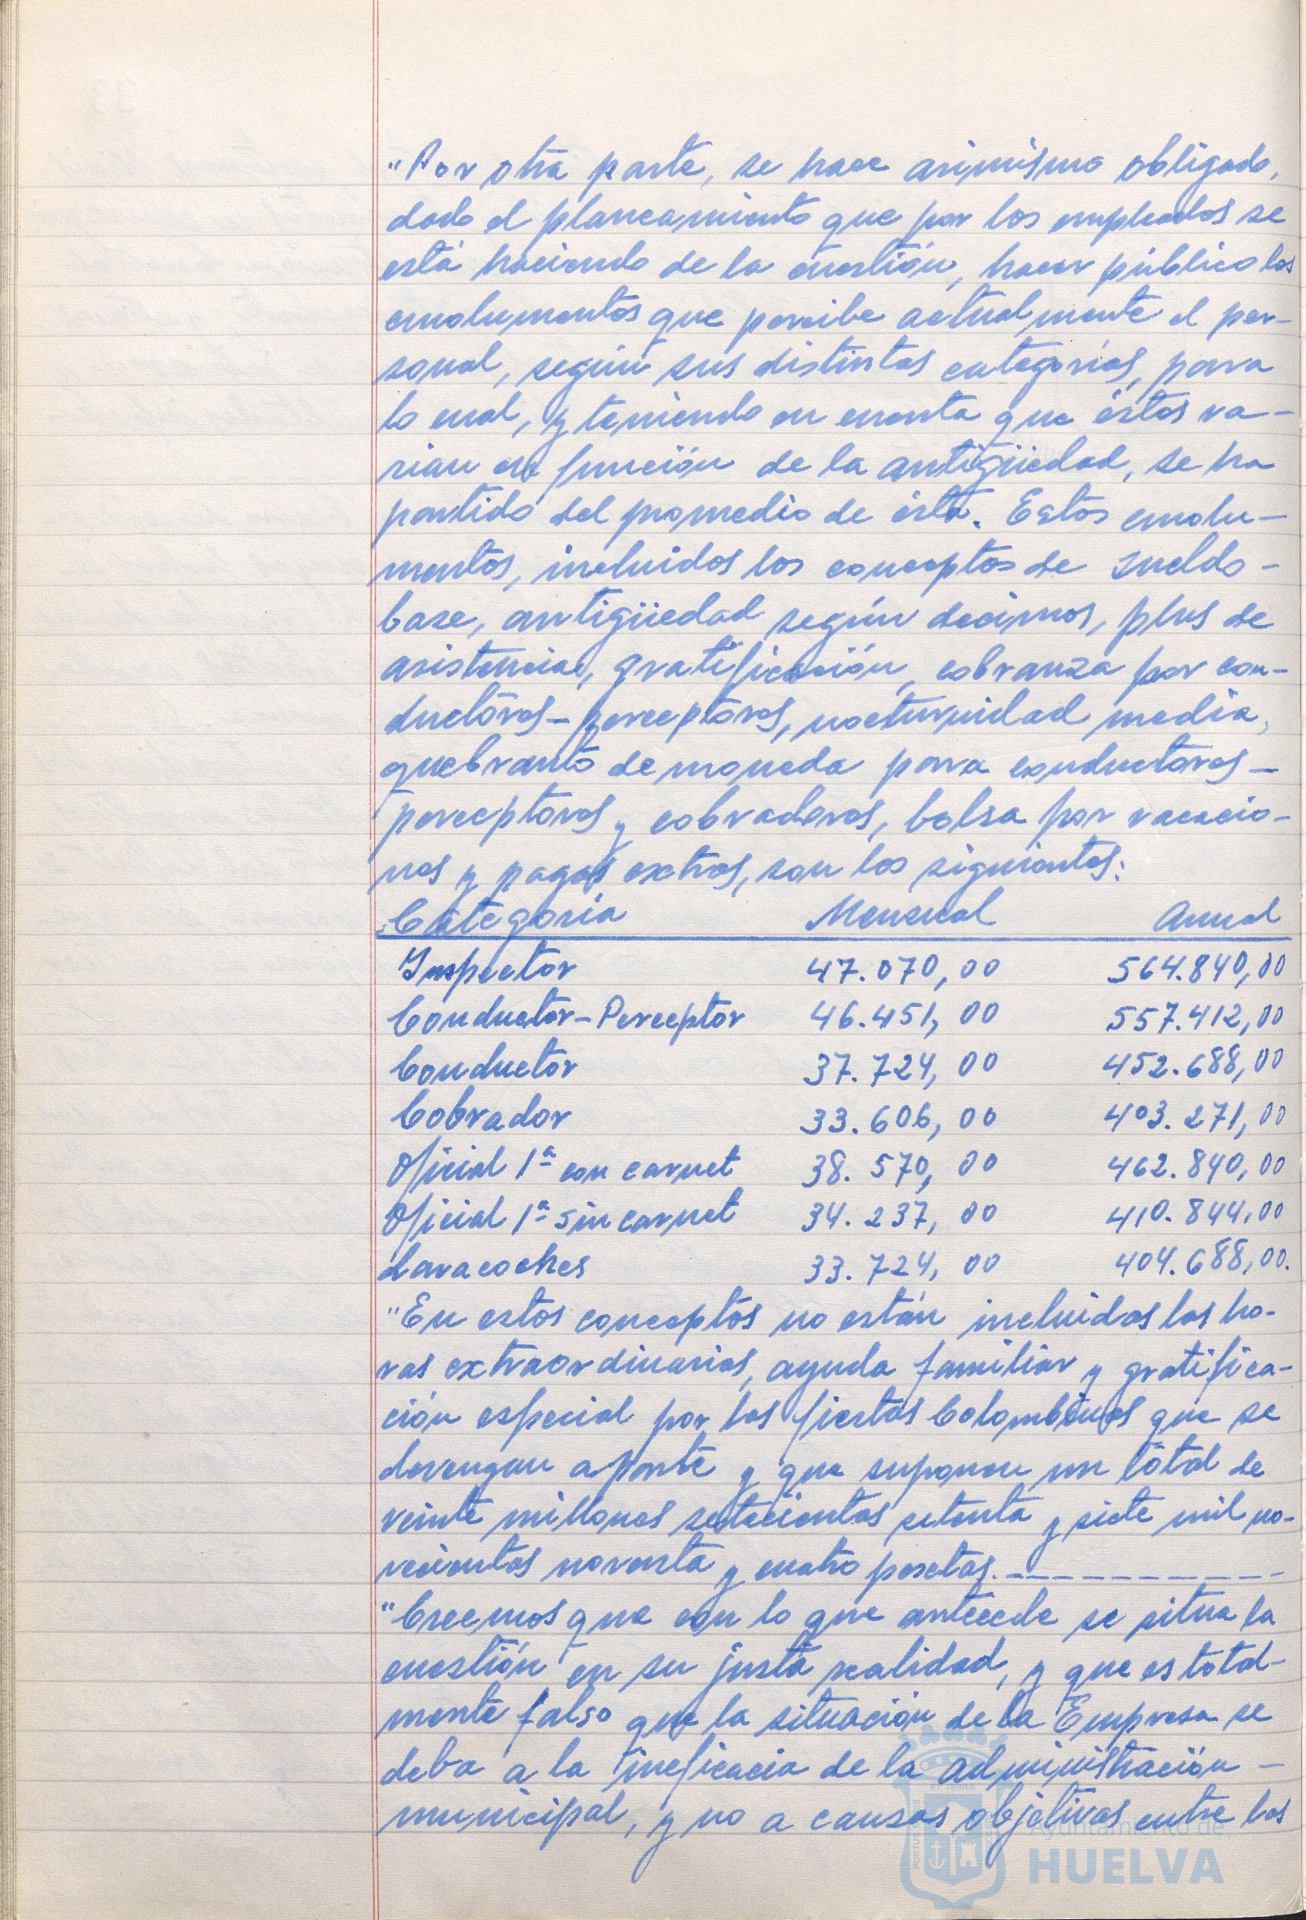 "Por otra parte, se hace asimismo obligado,
dado el planeamiento que por los empleados se
está haciendo de la cuestión, hacer público los
emolumentos que percibe actualmente el per-
sonal, según sus distintas categorías, para
lo cual, y teniendo en cuenta que éstos va-
rian en función de la antigüedad, se ha
partido del promedio de ésta. Estos emolu-
mentos, incluidos los conceptos de sueldo-
base, antigüedad según decimos, plus de
asistencia, gratificación, cobranza por con-
ductores-perceptores, nocturnidad media,
quebranto de moneda para conductores-
perceptores y cobradores, bolsa por vacacio-
nes y pagas extras, son los siguientes:
Categoría Mensual Anual
Inspector 47.070,00 564.840,00
Conductor-Perceptor 46.451,00 557.412,00
Conductor 37.724,00 452.688,00
Cobrador 33.606,00 403.271,00
Oficial 1ª con carnet 38.570,00 462.840,00
Oficial 1ª sin carnet 34.237,00 410.844,00
Lavacoches 33.724,00 404.688,00.
"En estos conceptos no están incluidas las ho-
ras extraordinarias, ayuda familiar y gratifica-
ción especial por las fiestas Colombinas que se
devengan aparte y que suponen un total de
veinte millones setecientas setenta y siete mil no-
vecientas noventa y cuatro pesetas.----------
"Creemos que con lo que antecede se situa la
cuestión en su justa realidad, y que es total-
mente falso que la situación de la Empresa se
deba a la ineficacia de la administración-
municipal, y no a causas objetivas entre las
Ayuntamiento de
HUELVA